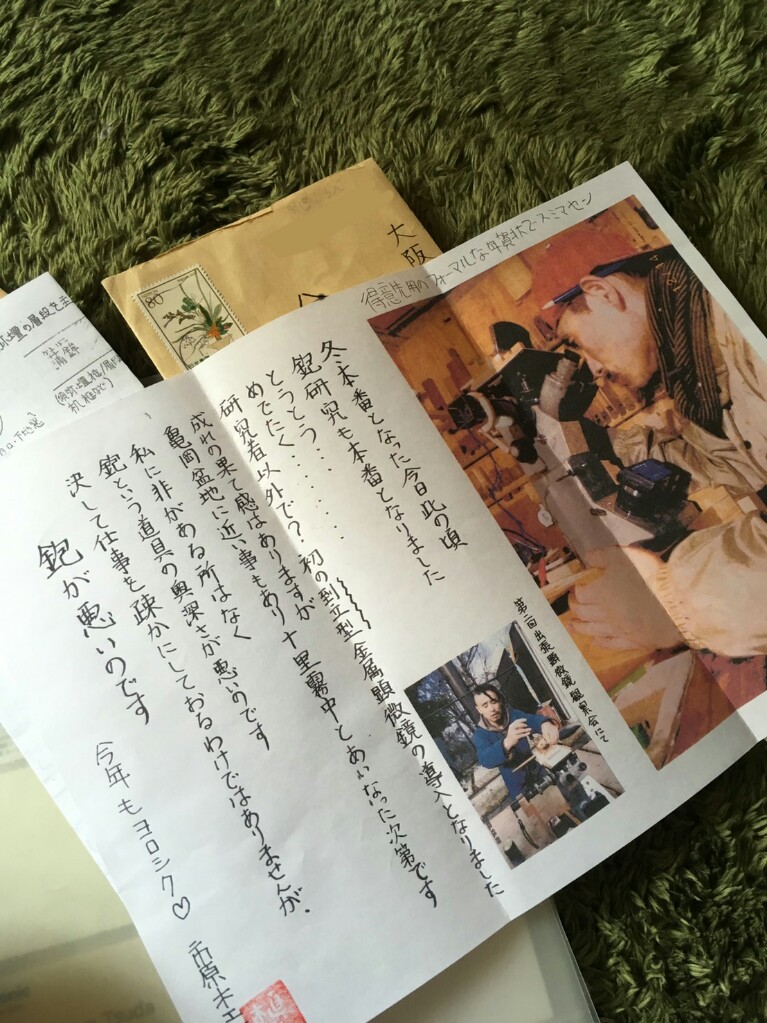 得意先用のフォーマルな年賀状でスミマセン
冬本番となった今日此の頃
鉋研究も本番となりました
とうとう・・・・・・・・
めでたく
研究者以外で？初の倒立型金属顕微鏡の導入となりました
成れの果て感はありますが
亀岡盆地に近い事もあり十里霧中とあいなった次第です
私に非がある所はなく
鉋という道具の奥深さが悪いのです
決して仕事を疎かにしておるわけではありませんが、
鉋が悪いのです
今年もヨロシク♡
市原木工
第二回出張顕微鏡観察会にて
大阪
80
弥壇の眉段を
(須弥壇框/眉
机框など)